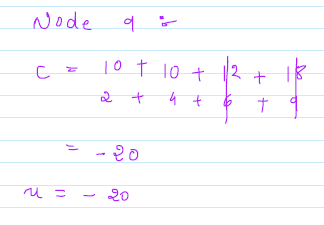 Node 9 :-
C = 10 + 10 + 12 + 18
2 + 4 + 6 + 9
= -20
u = - 20